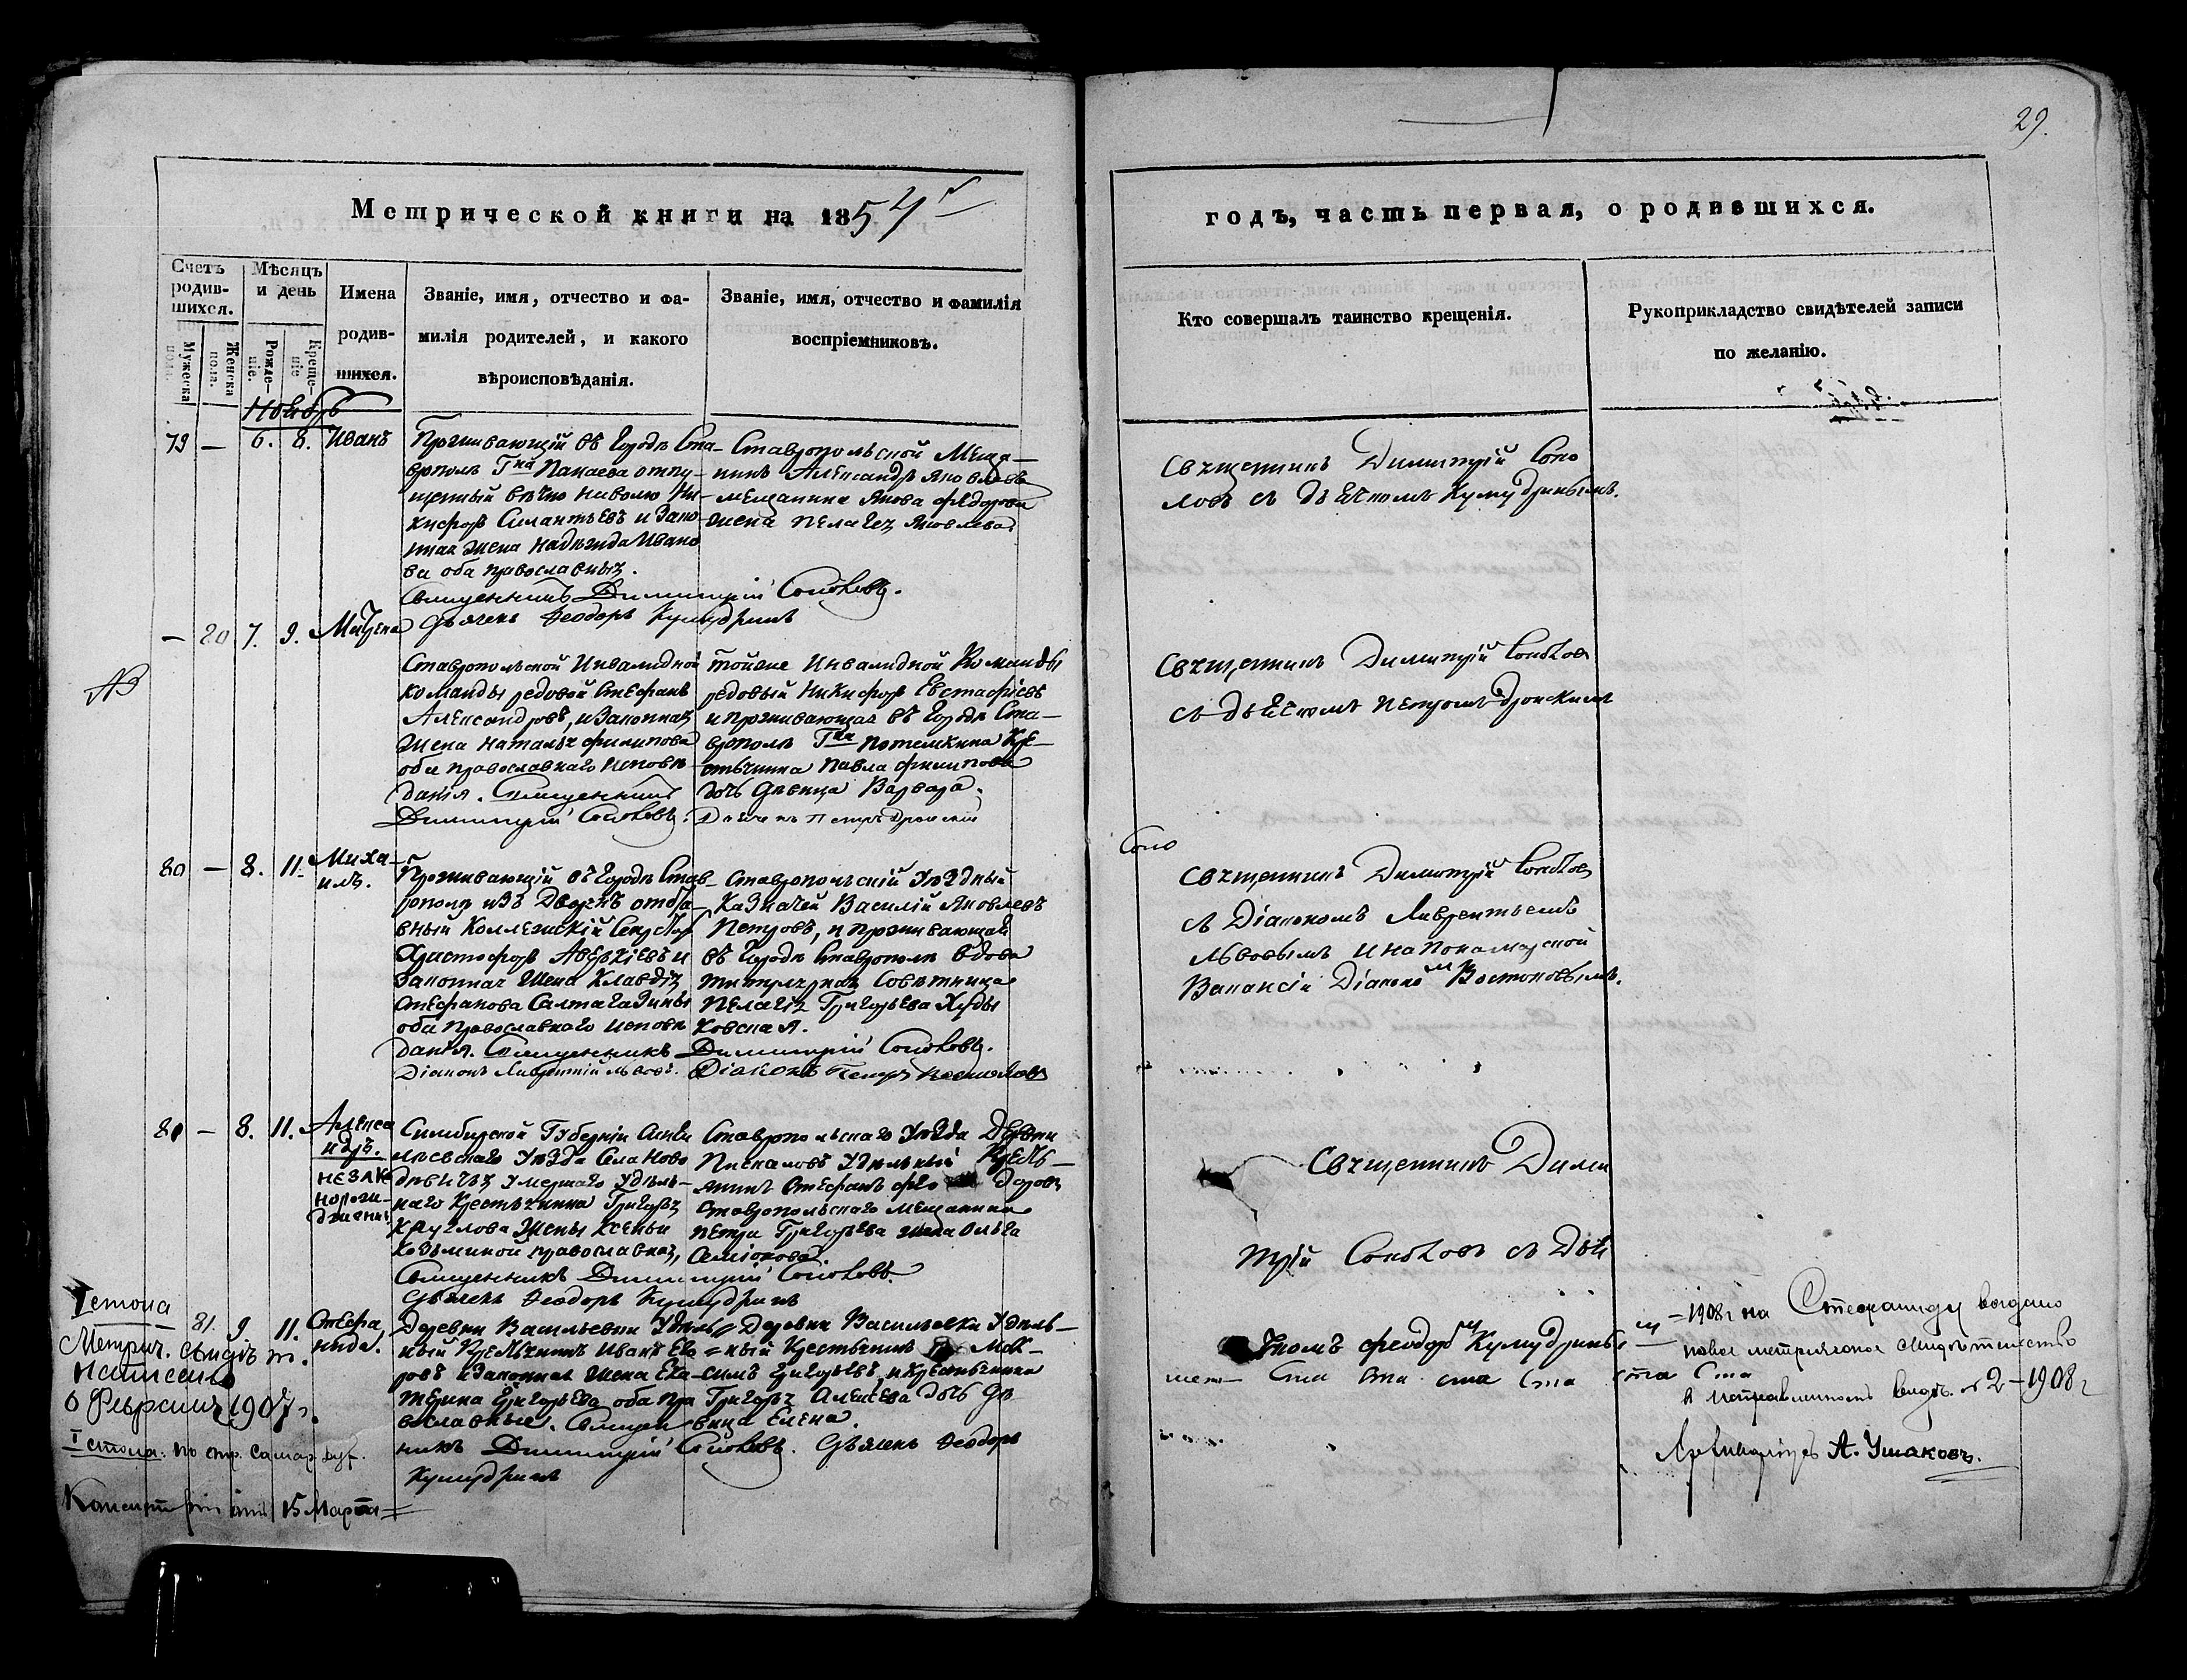 29.
Метрической книги на 1854
годъ, часть первая, о родившихся.
Счетъ родив-шихся.
Мужеска пола.
Женска пола.
Мѣсяцъ и день
Рожде-ніе.
Креще-ніе
Имена
родив-
шихся.
Званіе, имя, отчество и фа-
милія родителей, и какого
вѣроисповѣданія.
Званіе, имя, отчество и фамилія
воспріемниковъ.
Кто совершалъ таинство крещенія.
Рукоприкладство свидѣтелей записи
по желанію.
Ноябрь
79 — 6. 8. Иванъ
Проживающій въ городѣ Ста-
врополѣ Г-на Панаева отпу-
щенный вѣчно наволю Ни-
кифоръ Силантьевъ и Зако-
нная жена Надежда Ивано
ва оба православныя.
Священникъ Димитрій Соколовъ.
Дьячекъ Феодоръ Кумудринъ
Ставропольской Меща-
нинъ Александръ Яковлевъ
мещанина Якова Федорова
жена Пелагея Яковлева.
Священникъ Димитрій Соко
ловъ съ дьячкомъ Кумудринымъ.
— 80 7. 9. Матрена
Ставропольской Инвалидной
команды редовой Стефанъ
Александровъ, и Законная
жена Наталья Филипова
оба православнаго исповѣ
данія. Священникъ
Димитрій Соколовъ.
тойже Инвалидной Команды
редовый Никифоръ Евстафіевъ
и проживающая въ городѣ Ста-
врополѣ Г-на Потемкина Кре-
стьянина Павла Филипова
дочь Девица Варвара.
Дьячекъ Петръ Дронскій
Священникъ Димитрій Соколовъ
съ дьячкомъ Петромъ Дронскимъ
80 — 8. 11. Миха-
илъ.
Проживающій въ городѣ Став-
рополѣ изъ Дворянъ отста-
вный Коллежскій Секретарь
Христофоръ Аверкіевъ и
Законная Жена Клавдія
Стефанова Салтагазины
оба православнаго исповѣ
данія. Священникъ Димитрій Соколовъ.
Діаконъ Лаврентій Львовъ. Діаконъ Петръ
Ставропольскій Уѣздный
Казначей Василій Яковлевъ
Петровъ, и проживающая
въ городѣ Ставрополѣ вдова
титулярная Совѣтница
Пелагія Григорьева Худы
ковская.
Соко
Священникъ Димитрій Соколовъ
съ Діакономъ Лаврентьемъ
Львовымъ и на Пономарской
Вакансіи Діакономъ Востоковымъ.
81 — 8. 11. Алекса
ндръ.
незак
норож-
денны
Симбирской Губерніи Сенги
леевскаго Уѣзда Села Ново
дѣвичья умершаго Удѣль-
наго Крестьянина Григорья
Круглова Жены Ксеньи
Козьминой православная,
Священникъ Димитрій Соколовъ.
Дьячекъ Феодоръ Кумудринъ
Ставропольскаго Уѣзда Деревни
Пискаловъ Удѣльный Кресть-
янинъ Стефанъ Фео доровъ
Ставропольскаго Мещанина
Петра Григорьева жена Ольга
Семіонова
Священникъ Дими
трій Соколовъ съ Дья
чкомъ Феодоромъ Кумудринымъ
— 81. 9 11. Стефа
нида.
Деревни Васильевки Удѣль-
ный Крестьянинъ Иванъ Его
ровъ и Законная Жена Ека-
терина Григорьева оба пра
вославные. Священ
никъ Димитрій Соколовъ. Дьячекъ Феодоръ
Кумудринъ
Деревни Васильевки Удѣль-
ный Крестьянинъ Мак-
симъ Григорьевъ, и Крестьянина
Григорья Алексева дочь Дѣ
вица Елена.
I стола
Метрич. свидѣт.
написано
6 Февраля 1907 г.
I стола: по отр. Самар. дух.
Консисторіи отъ 15 Марта
1908 г на Стефаниду выдано
новое метрическое свидѣтельство
2 — 1908 г
Архиваріусъ А. Ушаковъ.